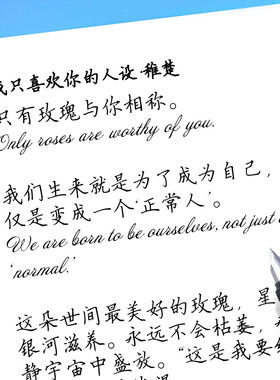 我只喜欢你的人设·稚楚
只有玫瑰与你相称。
Only roses are worthy of you.
我们生来就是为了成为自己，
仅是变成一个‘正常人’。
We are born to be ourselves, not just
‘normal.’
这朵世间最美好的玫瑰，星
银河滋养。永远不会枯萎，
静宇宙中盛放。“这是我要